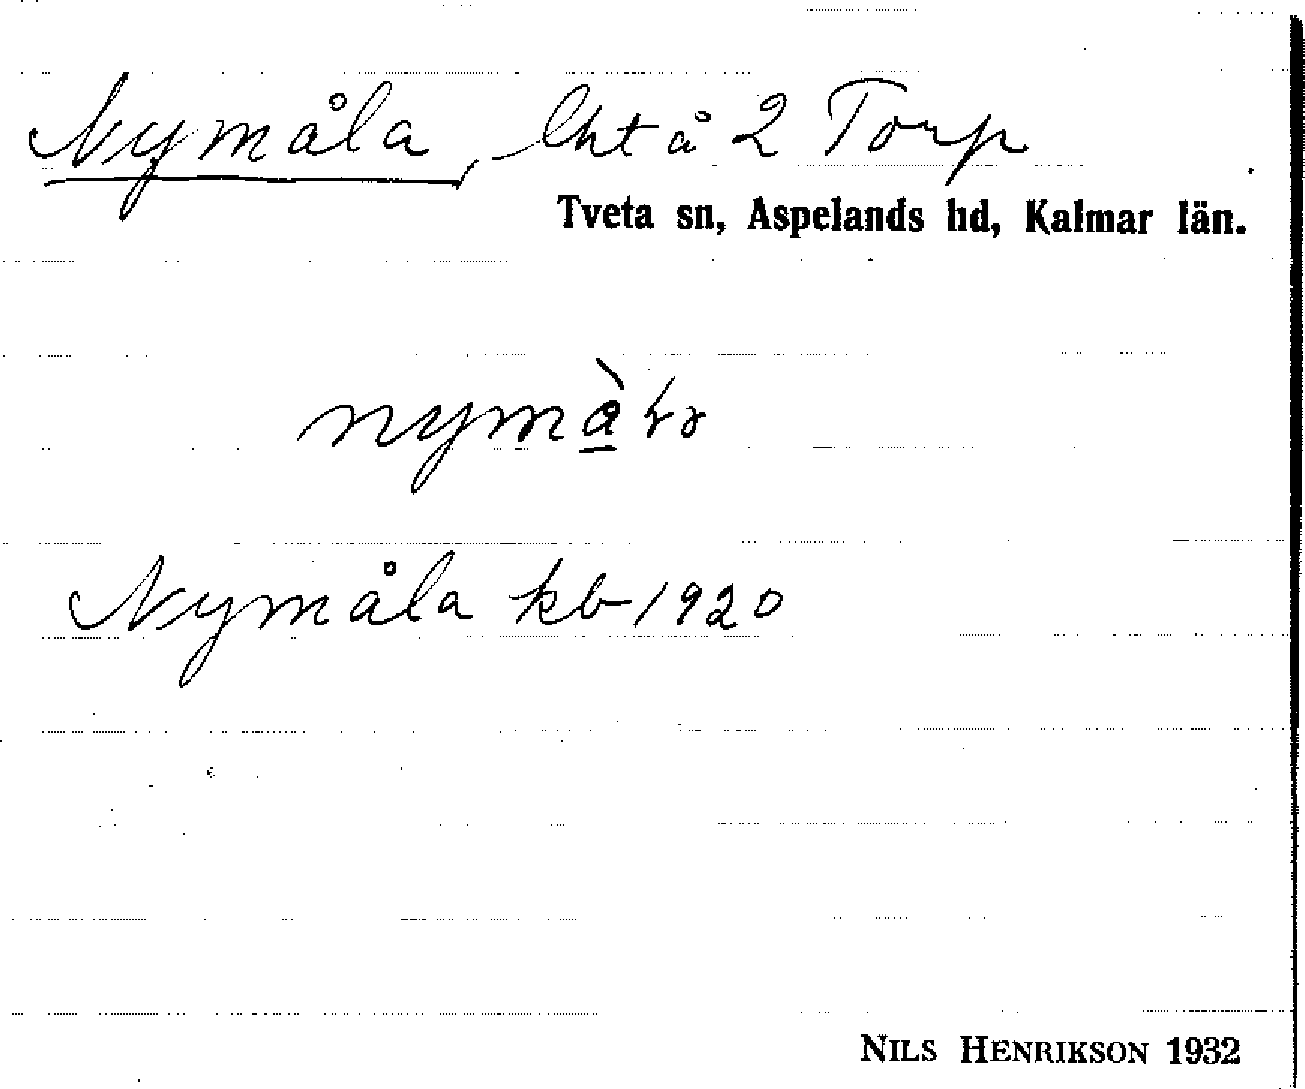 Nymåla, lht å 2 Torp
Tveta sn, Aspelands hd, Kalmar län.
Nymåla kb 1920
NILS HENRIKSON 1932